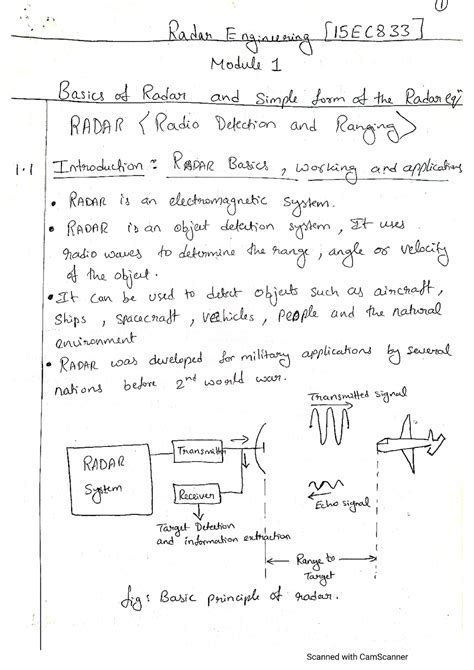 ①
Radar Engineering [15EC833]
Module 1
Basics of Radar and Simple form of the Radar eqn
RADAR < Radio Detection and Ranging >
1.1 Introduction : RADAR Basics, working and applications
• RADAR is an electromagnetic System.
• RADAR is an object detation system, It uses
radio waves to determine the range, angle or velocity
of the object.
• It can be used to detect objects such as aircraft,
ships, spacecraft, vehicles, people and the natural
environment
• RADAR was developed for military applications by several
nations before 2nd world war.
Transmitted Signal
RADAR
System
Transmitter
Receiver
Echo signal
Target Detection
and information extraction
Range to
Target
fig : Basic principle of radar.
Scanned with CamScanner